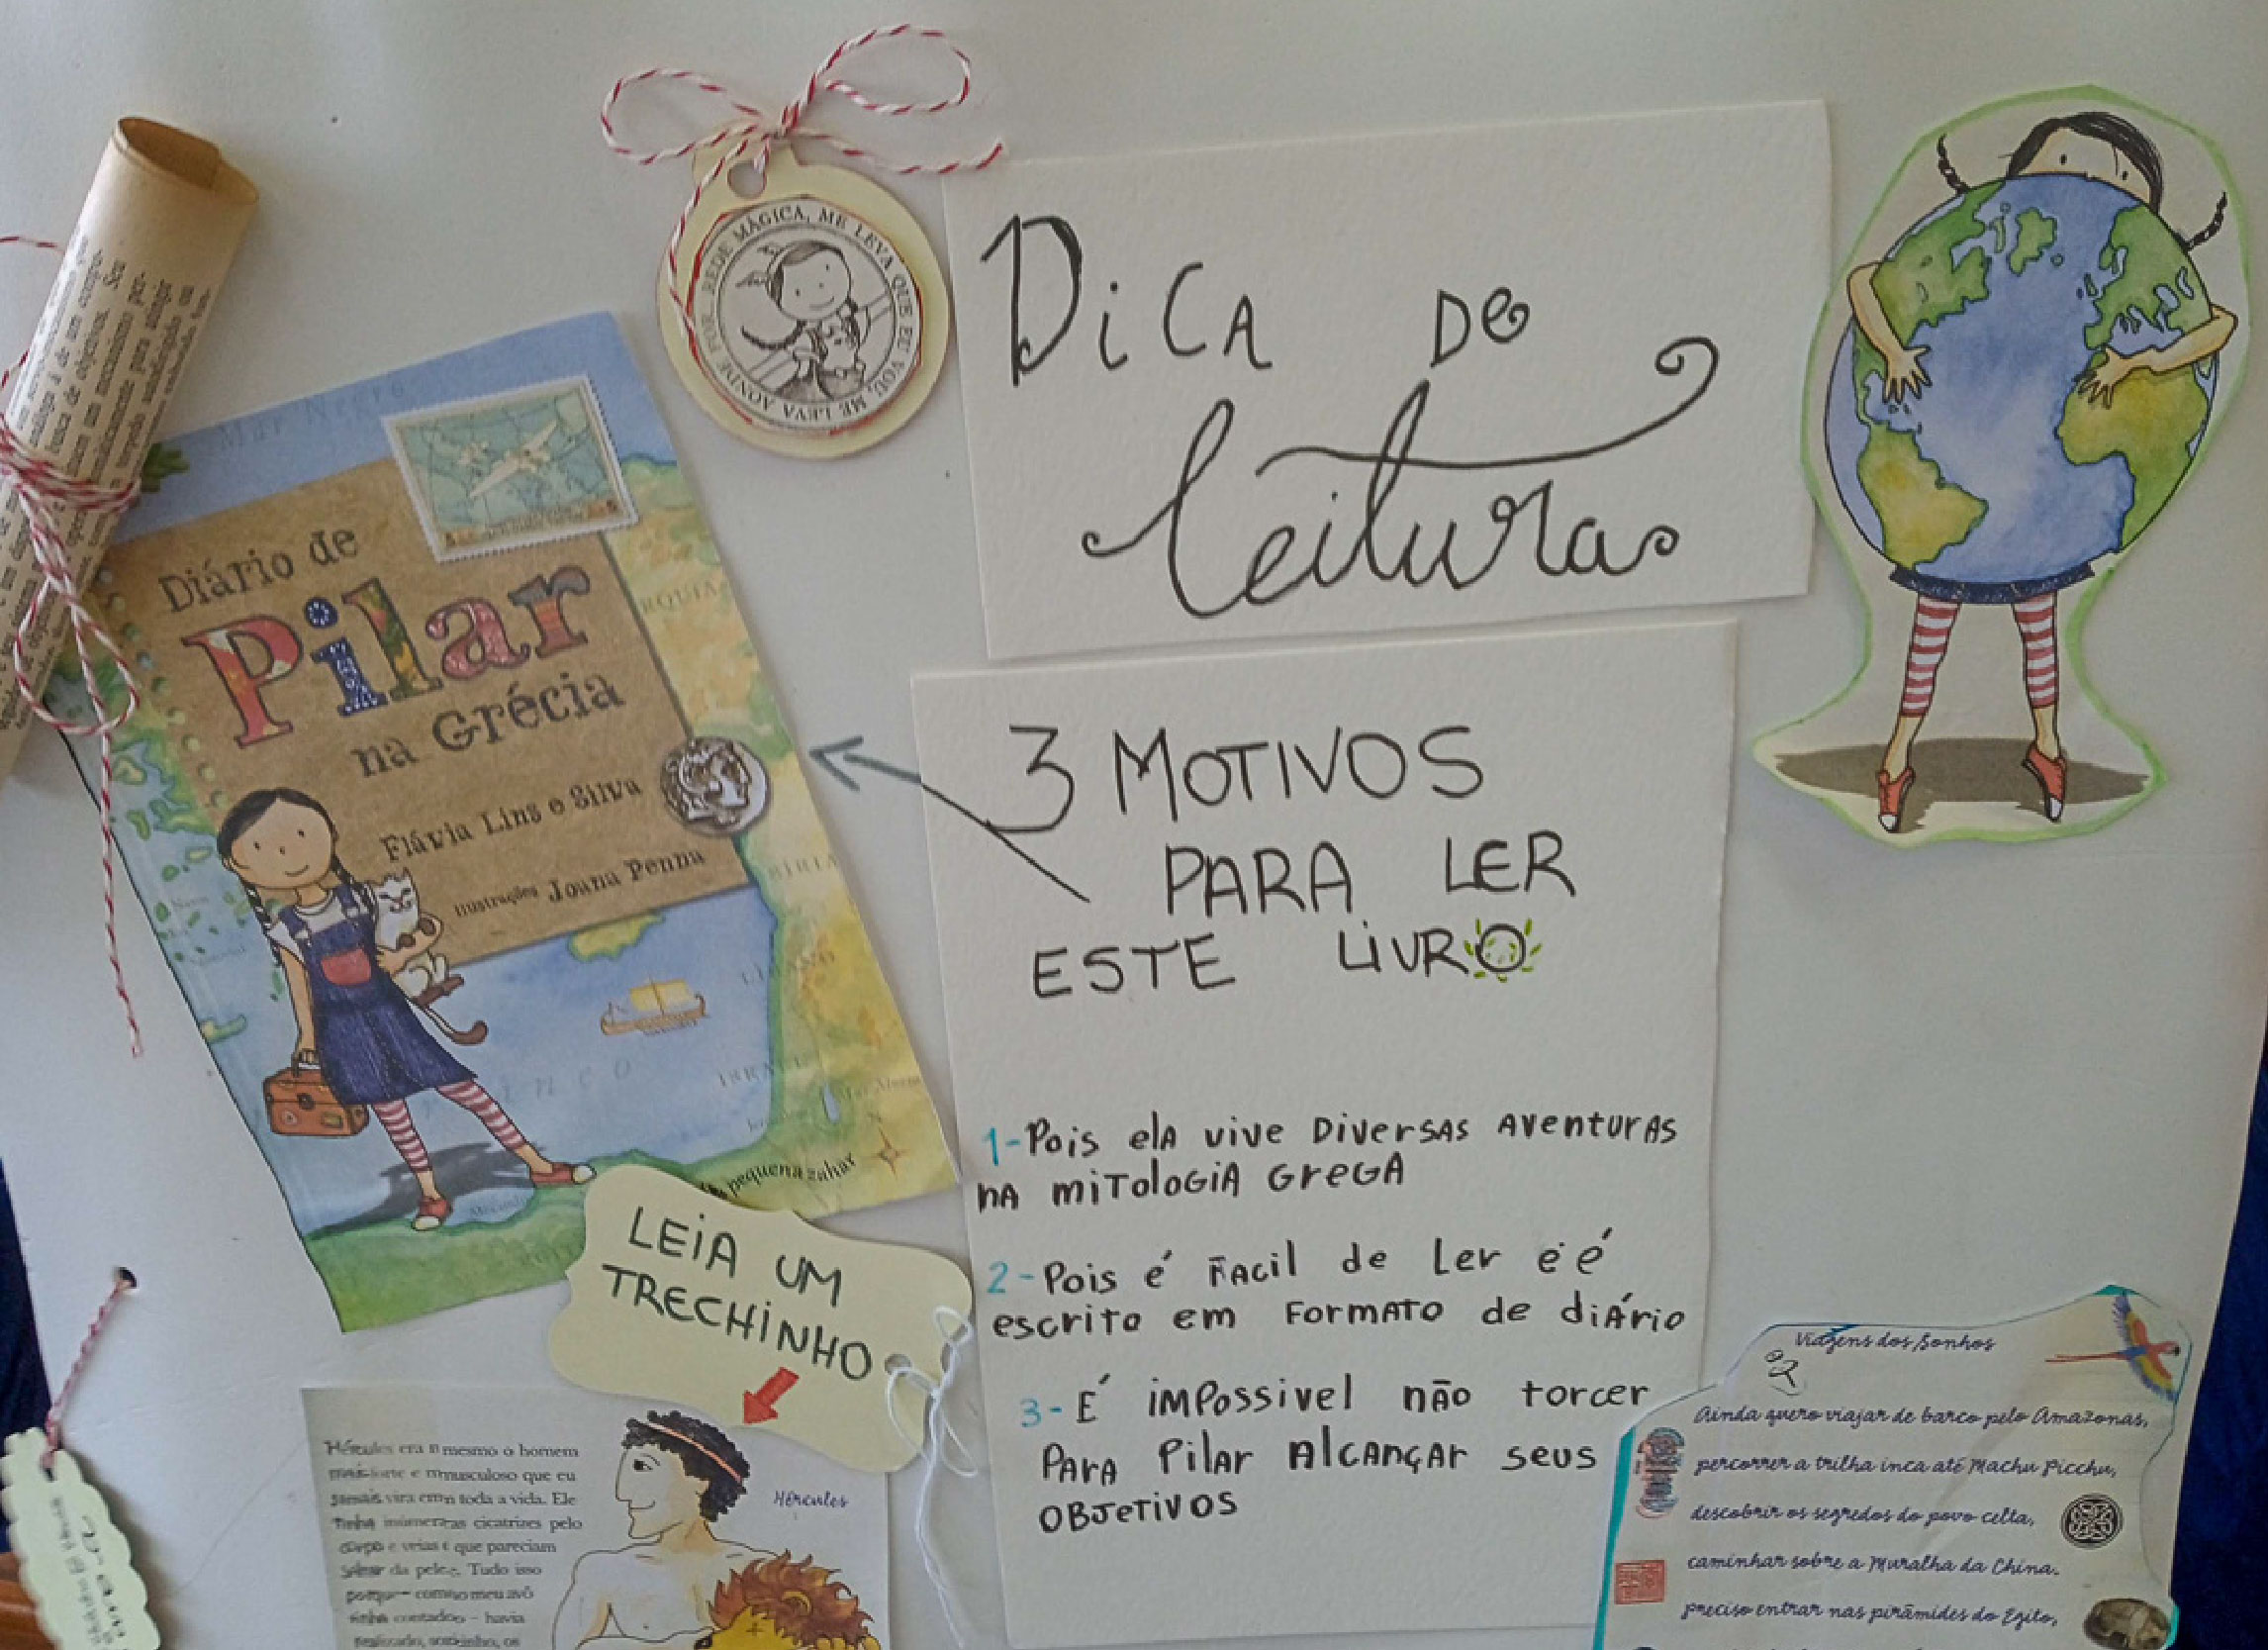 REDE MÁGICA, ME LEVA QUE EU VOU, ME LEVA AONDE FOR
DiCA De
leitura
Mar Negro
Diário de
Pilar
na Grécia
Flávia Lins e Silva
Ilustrações Joana Penna
LÍBANO
ISRAEL
pequena zahar
3 MOTIVOS
PARA LER
ESTE LiVRO
1-Pois elA vive Diversas Aventuras
nA miTologiA GregA
2-Pois é FAcil de Ler e é
escrito em FormATO de diÁrio
3-É imPossivel não torcer
PArA Pilar AlcAnçAr seus
OBJeTivos
LEiA UM
TRECHiNHO
Hércules era mesmo o homem
mais forte e musculoso que eu
jamais vira em toda a vida. Ele
Tinha inúmeras cicatrizes pelo
corpo e veias que pareciam
saltar da pele. Tudo isso
porque – como meu avô
tinha contado – havia
realizado, sozinho, os
Hércules
Viagens dos Sonhos
Ainda quero viajar de barco pelo Amazonas,
percorrer a trilha inca até Machu Picchu,
descobrir os segredos do povo celta,
caminhar sobre a Muralha da China.
preciso entrar nas pirâmides do Egito,